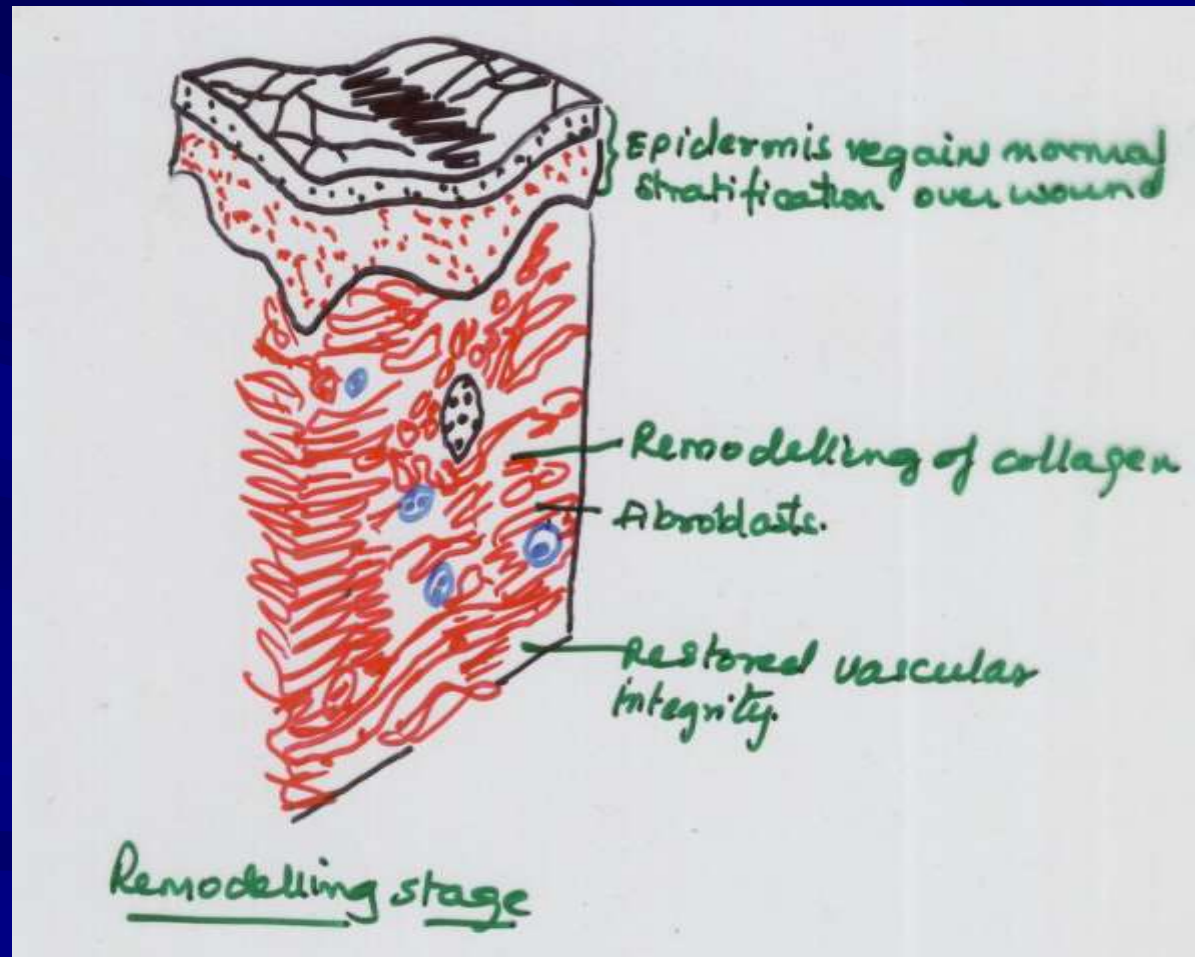 Epidermis regain normal
stratification over wound
Remodelling of collagen
Fibroblasts.
Restored vascular
integrity.
Remodelling stage